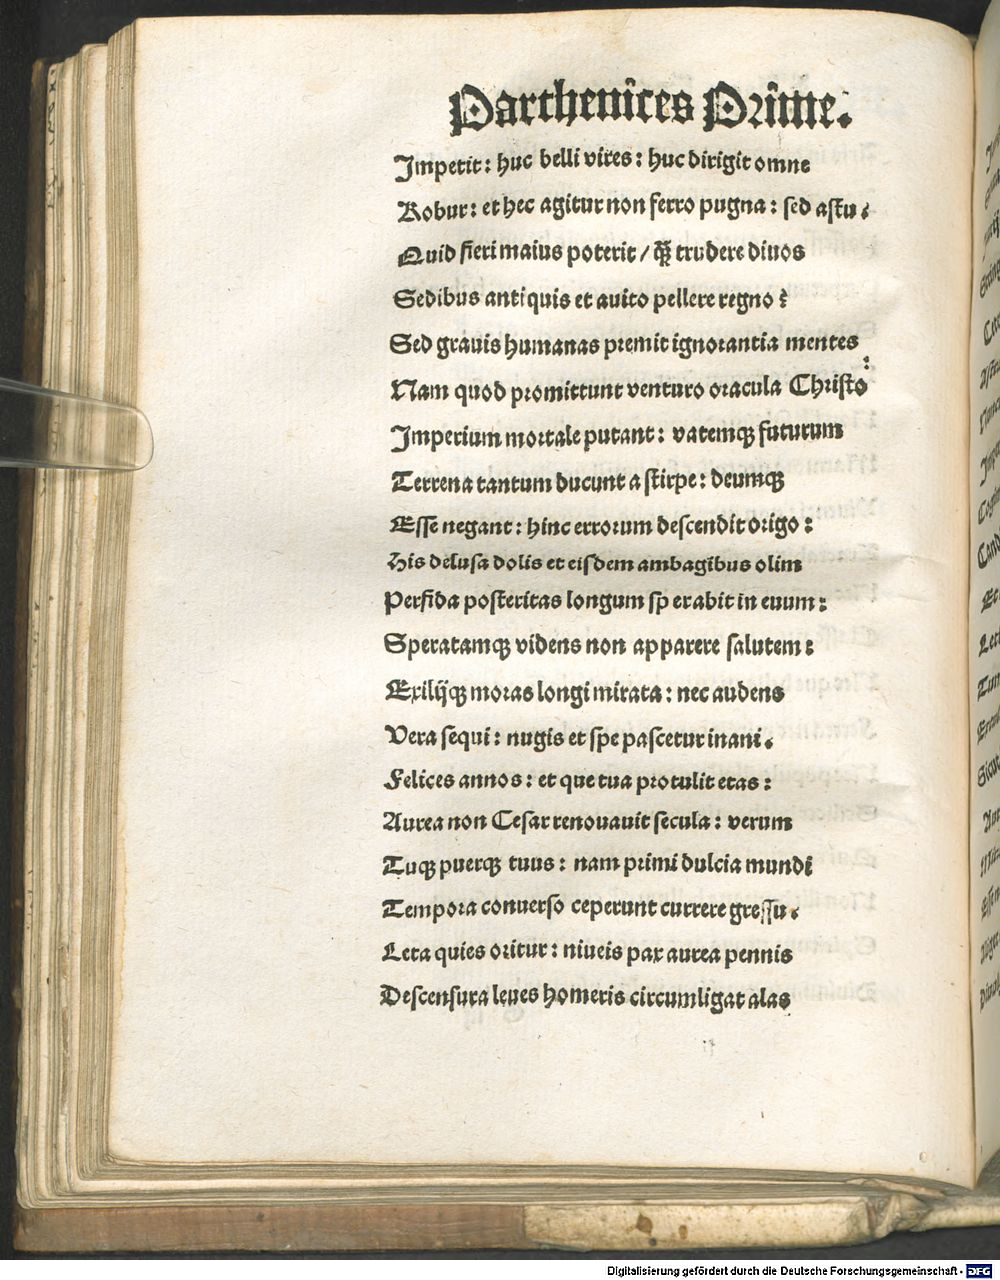 Parthenices Prime.
Impetit: huc belli vires: huc dirigit omne
Robur: et hec agitur non ferro pugna: sed astu.
Quid fieri maius poterit / ꝙ̃ trudere divos
Sedibus antiquis et avito pellere regno?
Sed gravis humanas premit ignorantia mentes:
Nam quod promittunt venturo oracula Christo
Imperium mortale putant: vatemqꝫ futurum
Terrena tantum ducunt a stirpe: deumqꝫ
Esse negant: hinc errorum descendit origo:
His delusa dolis et eisdem ambagibus olim
Perfida posteritas longum sperabit in evum:
Speratamqꝫ videns non apparere salutem:
Exilijqꝫ moras longi mirata: nec audens
Vera sequi: nugis et spe pascetur inani.
Felices annos: et que tua protulit etas:
Aurea non Cesar renovavit secula: verum
Tuqꝫ puerqꝫ tuus: nam primi dulcia mundi
Tempora converso ceperunt currere gressu.
Leta quies oritur: niveis pax aurea pennis
Descensura leves homeris circumligat alas
Digitalisierung gefördert durch die Deutsche Forschungsgemeinschaft - DFG